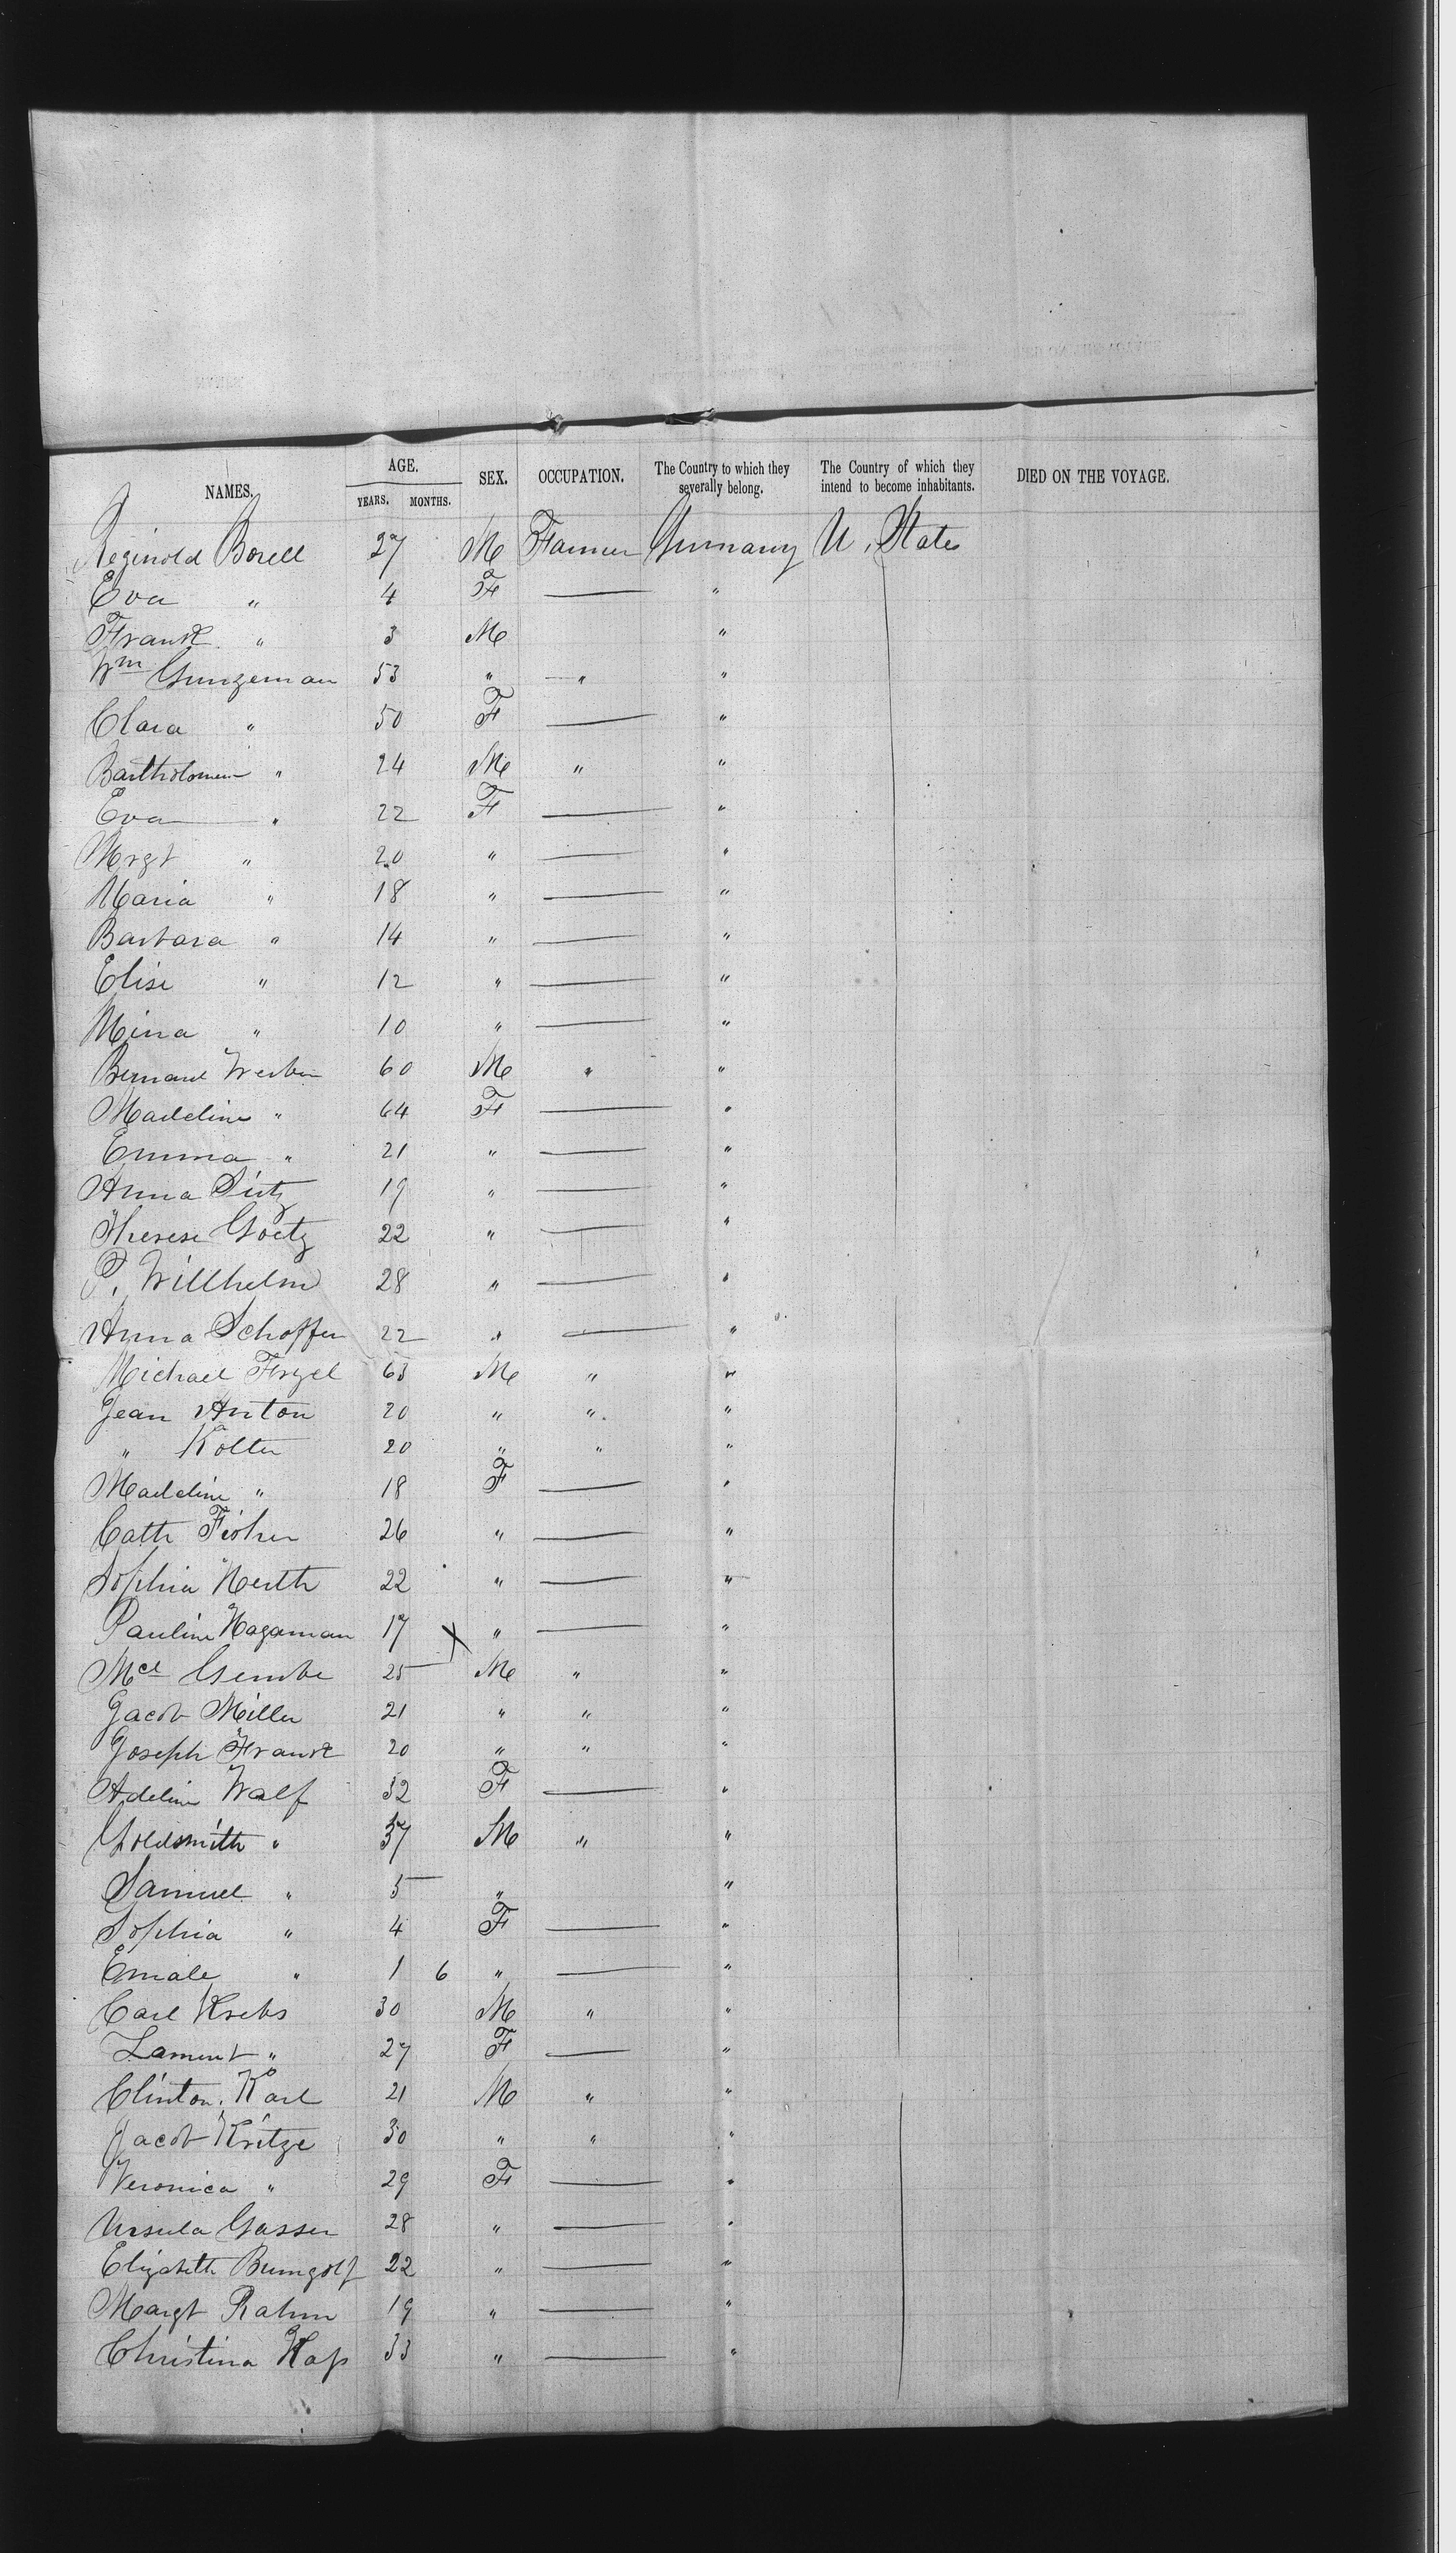 NAMES. AGE. YEARS. MONTHS. SEX. OCCUPATION. The Country to which they severally belong. The Country of which they intend to become inhabitants. DIED ON THE VOYAGE.
Reginold Borell 27 M Farmer Germany U. States
Eva " 4 F — "
Frank " 3 M "
Wm Gunzeman 53 " " "
Clara " 50 F — "
Bartholomew " 24 M " "
Eva " 22 F — "
Mrgt " 20 " — "
Maria " 18 " — "
Barbara " 14 " — "
Elise " 12 " — "
Mina " 10 " — "
Bernard Weber 60 M " "
Madeline " 64 F — "
Emma " 21 " — "
Anna 19 " — "
Therese Goetz 22 " — "
P. Willhelm 28 " — "
Anna Schoffer 22 " — "
Michael 63 M " "
Jean Anton 20 " " "
" Kolter 20 " " "
Madeline " 18 F — "
Cath Fisher 26 " — "
Sophia 22 " — "
Pauline Hagaman 17 X " — "
Mcl 25 M " "
Jacob Miller 21 " " "
Joseph Frank 20 " " "
Adeline Walf 32 F — "
Goldsmith " 37 M " "
Samuel " 5 " "
Sophia " 4 F — "
Emale " 1 6 " — "
Carl Krebs 30 M " "
Lament " 27 F — "
Clinton. Karl 21 M " "
Jacob Kritze 30 " " "
Veronica " 29 F — "
Ursula Gasser 28 " — "
Elizabeth 22 " — "
Margt Rahm 19 " — "
Christina 33 " — "